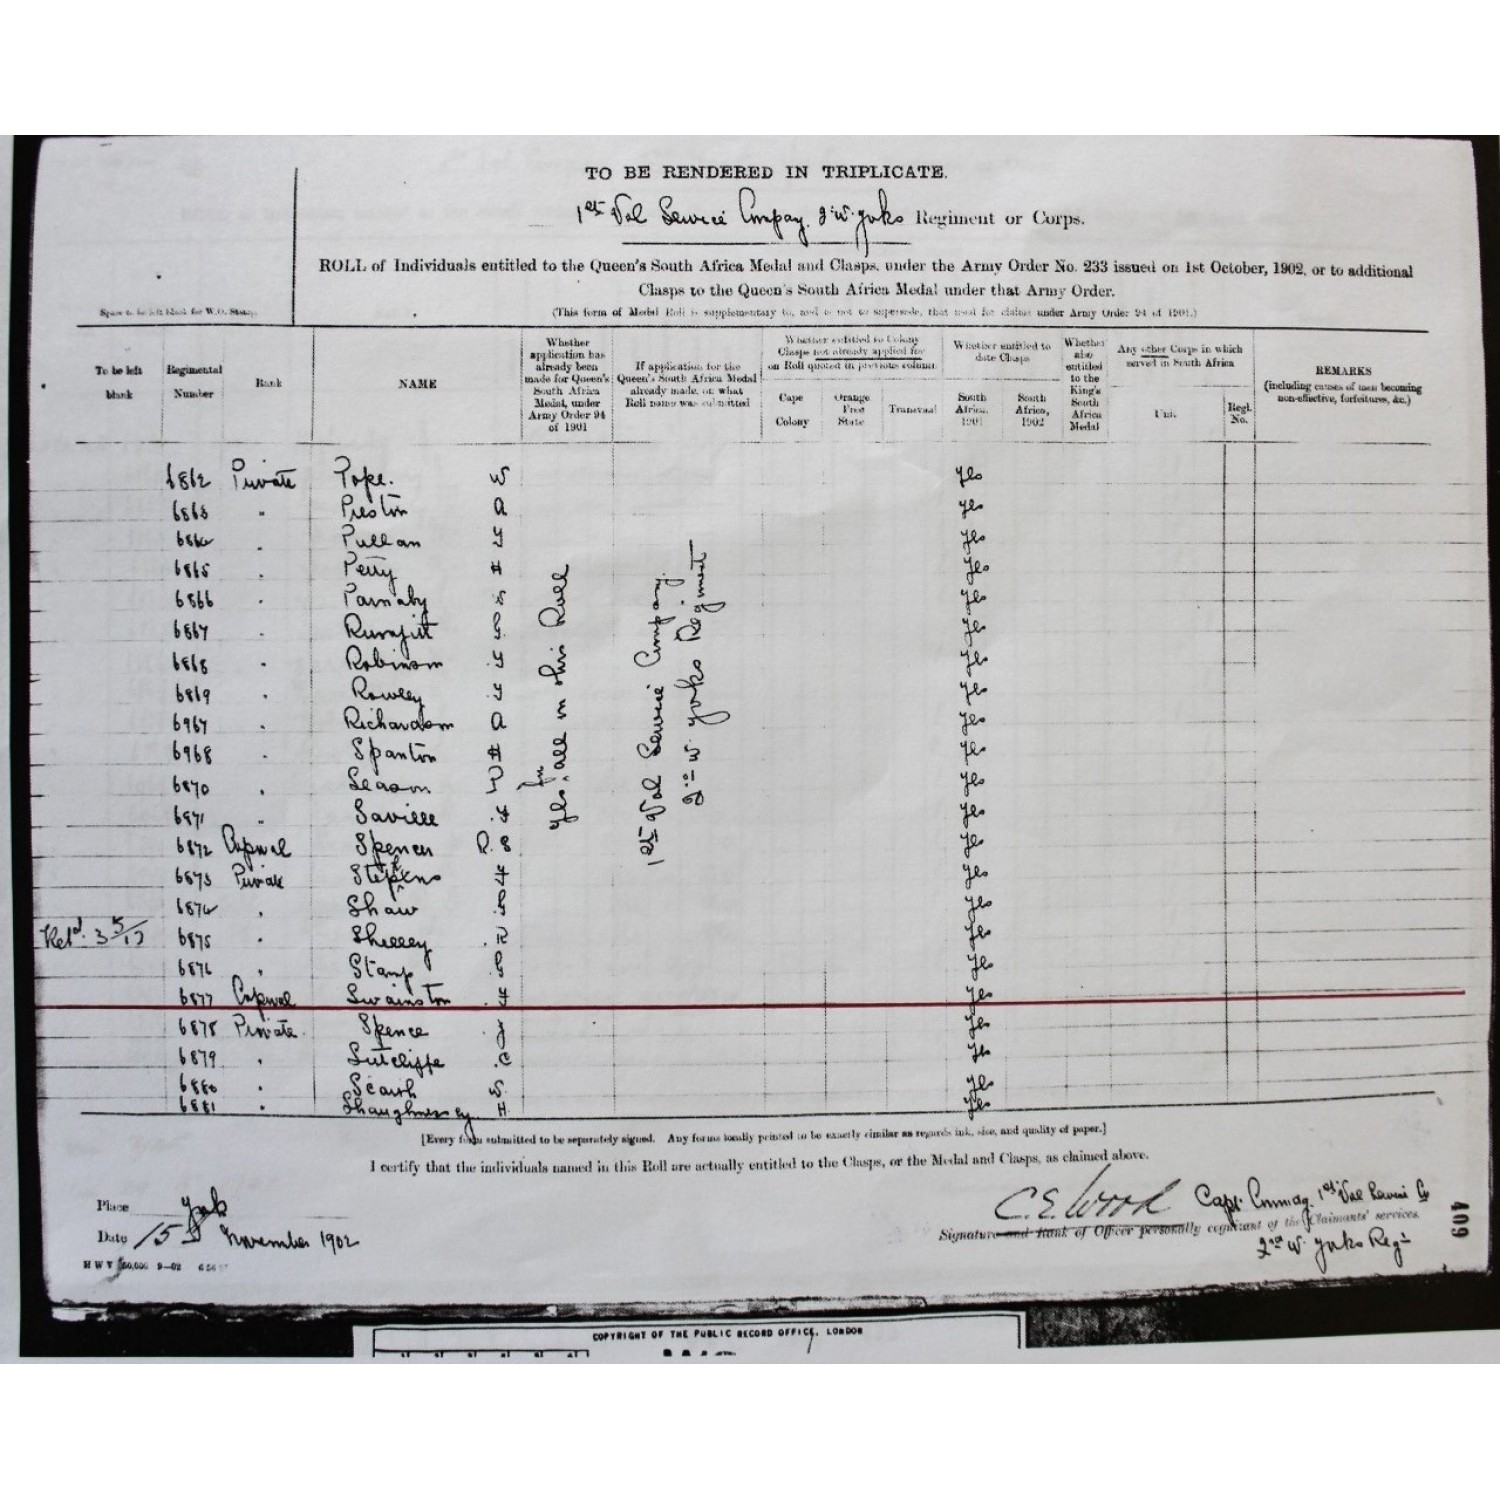 TO BE RENDERED IN TRIPLICATE.
1st Vol Service Company 2nd W. Yorks Regiment or Corps.
ROLL of Individuals entitled to the Queen's South Africa Medal and Clasps, under the Army Order No. 233 issued on 1st October, 1902, or to additional
Clasps to the Queen's South Africa Medal under that Army Order.
Space to be left blank for W.O. Stamp.
(This form of Medal Roll is supplementary to, and is not to supersede, that used for claims under Army Order 94 of 1901.)
To be left blank
Regimental Number
Rank
NAME
Whether application has already been made for Queen's South Africa Medal, under Army Order 94 of 1901
If application for the Queen's South Africa Medal already made, on what Roll name was submitted
Whether entitled to Colony Clasps not already applied for on Roll quoted in previous column
Cape Colony
Orange Free State
Transvaal
Whether entitled to date Clasps
South Africa, 1901
South Africa, 1902
Whether also entitled to the King's South Africa Medal
Any other Corps in which served in South Africa
Unit.
Regl. No.
REMARKS
(including causes of men becoming non-effective, forfeitures, &c.)
6862 Private Pope. W Yes
6863 " Preston A Yes
6864 " Pullan Yes
6865 " Perry H Yes
6866 " Parnaby S Yes
6867 " G. Yes
6868 " Robinson Yes
6869 " Rowley Yes
6967 " Richardson A Yes
6968 " Spanton H Yes
6870 " Season Yes
6871 " Saville Yes
6872 Corporal Spencer R. S Yes
6873 Private Stephens Yes
6874 " Shaw Yes
Retd. 3 5/17 6875 " Shelley R Yes
6876 " Stamp G Yes
6877 Corporal Swainston Yes
6878 Private Spence J Yes
6879 " Sutcliffe C Yes
6880 " Scarth W. Yes
6881 " Shaughnessey H Yes
Yes for all on this Roll
1st Vol Service Company.
2nd W. Yorks Regiment
[Every form submitted to be separately signed. Any forms locally printed to be exactly similar as regards ink, size, and quality of paper.]
I certify that the individuals named in this Roll are actually entitled to the Clasps, or the Medal and Clasps, as claimed above.
Place York
Date 15 November 1902
C. E. Wood Capt. Commdg. 1st Vol Service Co
Signature and Rank of Officer personally cognizant of the Claimants' services.
2nd W. Yorks Regt
409
H W V 50,000 9—02
COPYRIGHT OF THE PUBLIC RECORD OFFICE, LONDON